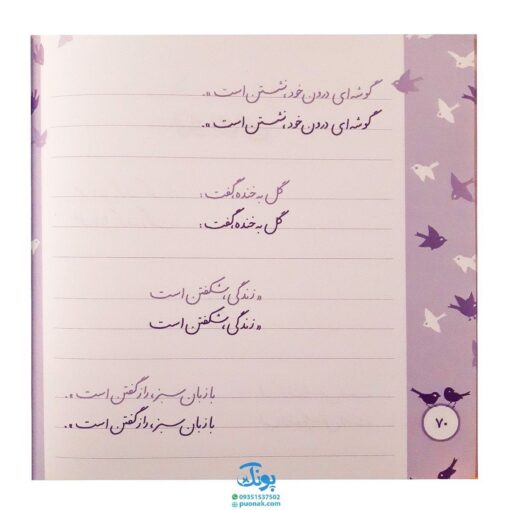 گوشه‌ای درون خود، نشستن است».
گوشه‌ای درون خود، نشستن است».
گل به خنده گفت:
گل به خنده گفت:
« زندگی، شکفتن است
« زندگی، شکفتن است
با زبان سبز، راز گفتن است».
با زبان سبز، راز گفتن است».
۷۰
پونک
09351537502
puonak.com